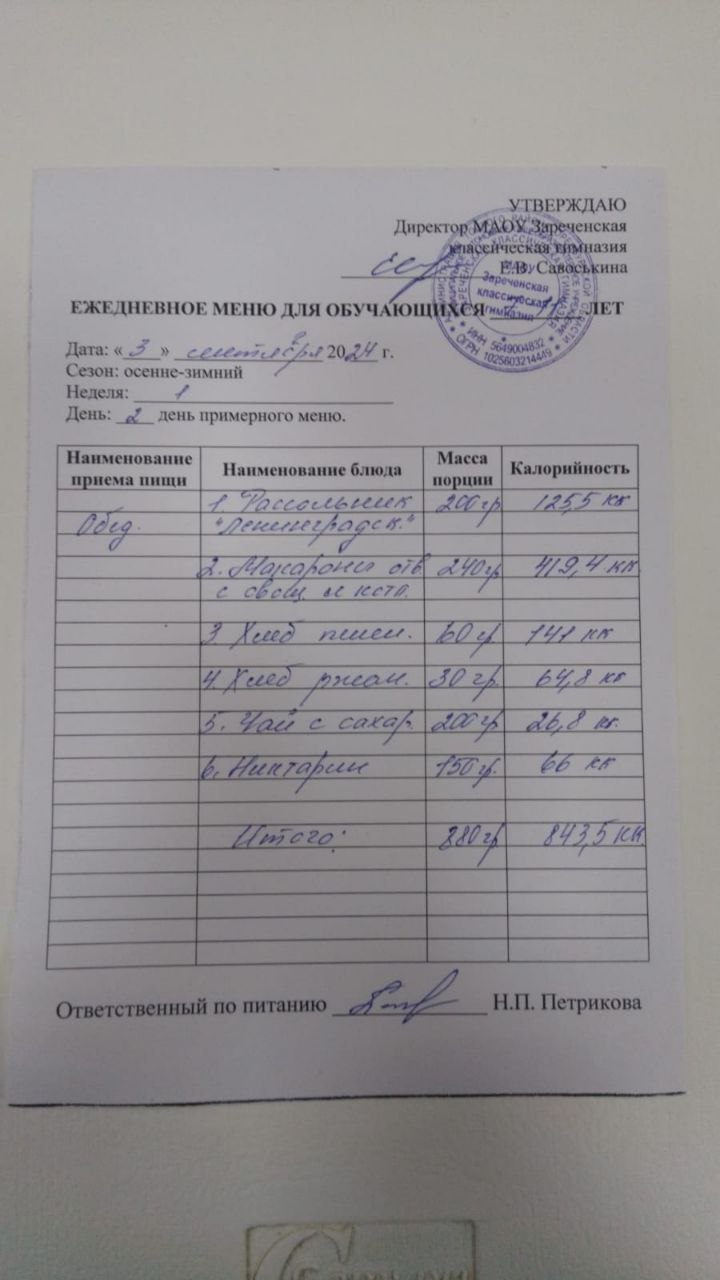 УТВЕРЖДАЮ
Директор МАОУ Зареченская
классическая гимназия
Е.В. Савоськина
МАОУ
Зареченская
классическая
гимназия
ИНН 5649004832
ОГРН 1025603214449
ЕЖЕДНЕВНОЕ МЕНЮ ДЛЯ ОБУЧАЮЩИХСЯ 7-11 ЛЕТ
Дата: « 3 » сентября 2024 г.
Сезон: осенне-зимний
Неделя: 1
День: 2 день примерного меню.
Наименование приема пищи Наименование блюда Масса порции Калорийность
1. Рассольник 200 гр 125,5 кк
Обед. "Ленинградск."
2. Макароны отв. 240 гр 419,4 кк
с овощ. и котл.
3. Хлеб пшен. 60 гр 141 кк
4. Хлеб ржан. 30 гр. 64,8 кк
5. Чай с сахар. 200 гр 26,8 кк.
6. Никтарин 150 гр. 66 кк
Итого: 880 гр 843,5 кк
Ответственный по питанию Н.П. Петрикова